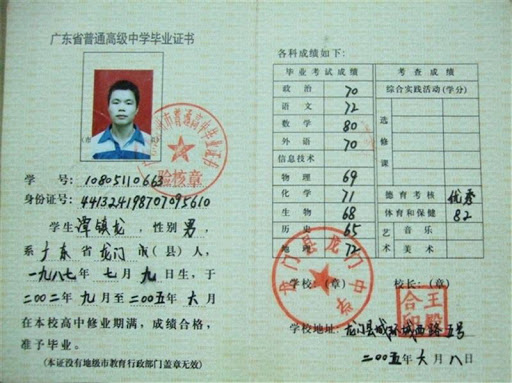 广东省普通高级中学毕业证书
验核章
学 号: 10805110663
身份证号: 441324198707095610
学生 潭镇龙 , 性别 男 ,
系 广东 省 龙门 市(县)人,
一九八七 年 七 月 九 日生, 于
二00二 年 九 月至 二00五 年 六 月
在本校高中修业期满, 成绩合格,
准予毕业。
(本证没有地级市教育行政部门盖章无效)
各科成绩如下:
毕业考试成绩 考查成绩
政治 70 综合实践活动(学分)
语文 72
数学 80 选修课
外语 70
信息技术
物理 69
化学 71 德育考核 优秀
生物 68 体育和保健 82
历史 65 艺术 音乐
地理 72 美术
学校: (章) 校长: (章)
龙门县龙门中学
学校地址: 龙门县城环城西路五号
二00五 年 六 月 八 日